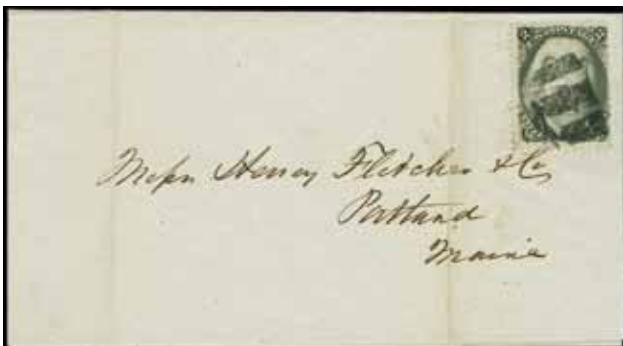 Messrs Hersey Fletcher & Co
Portland
Maine